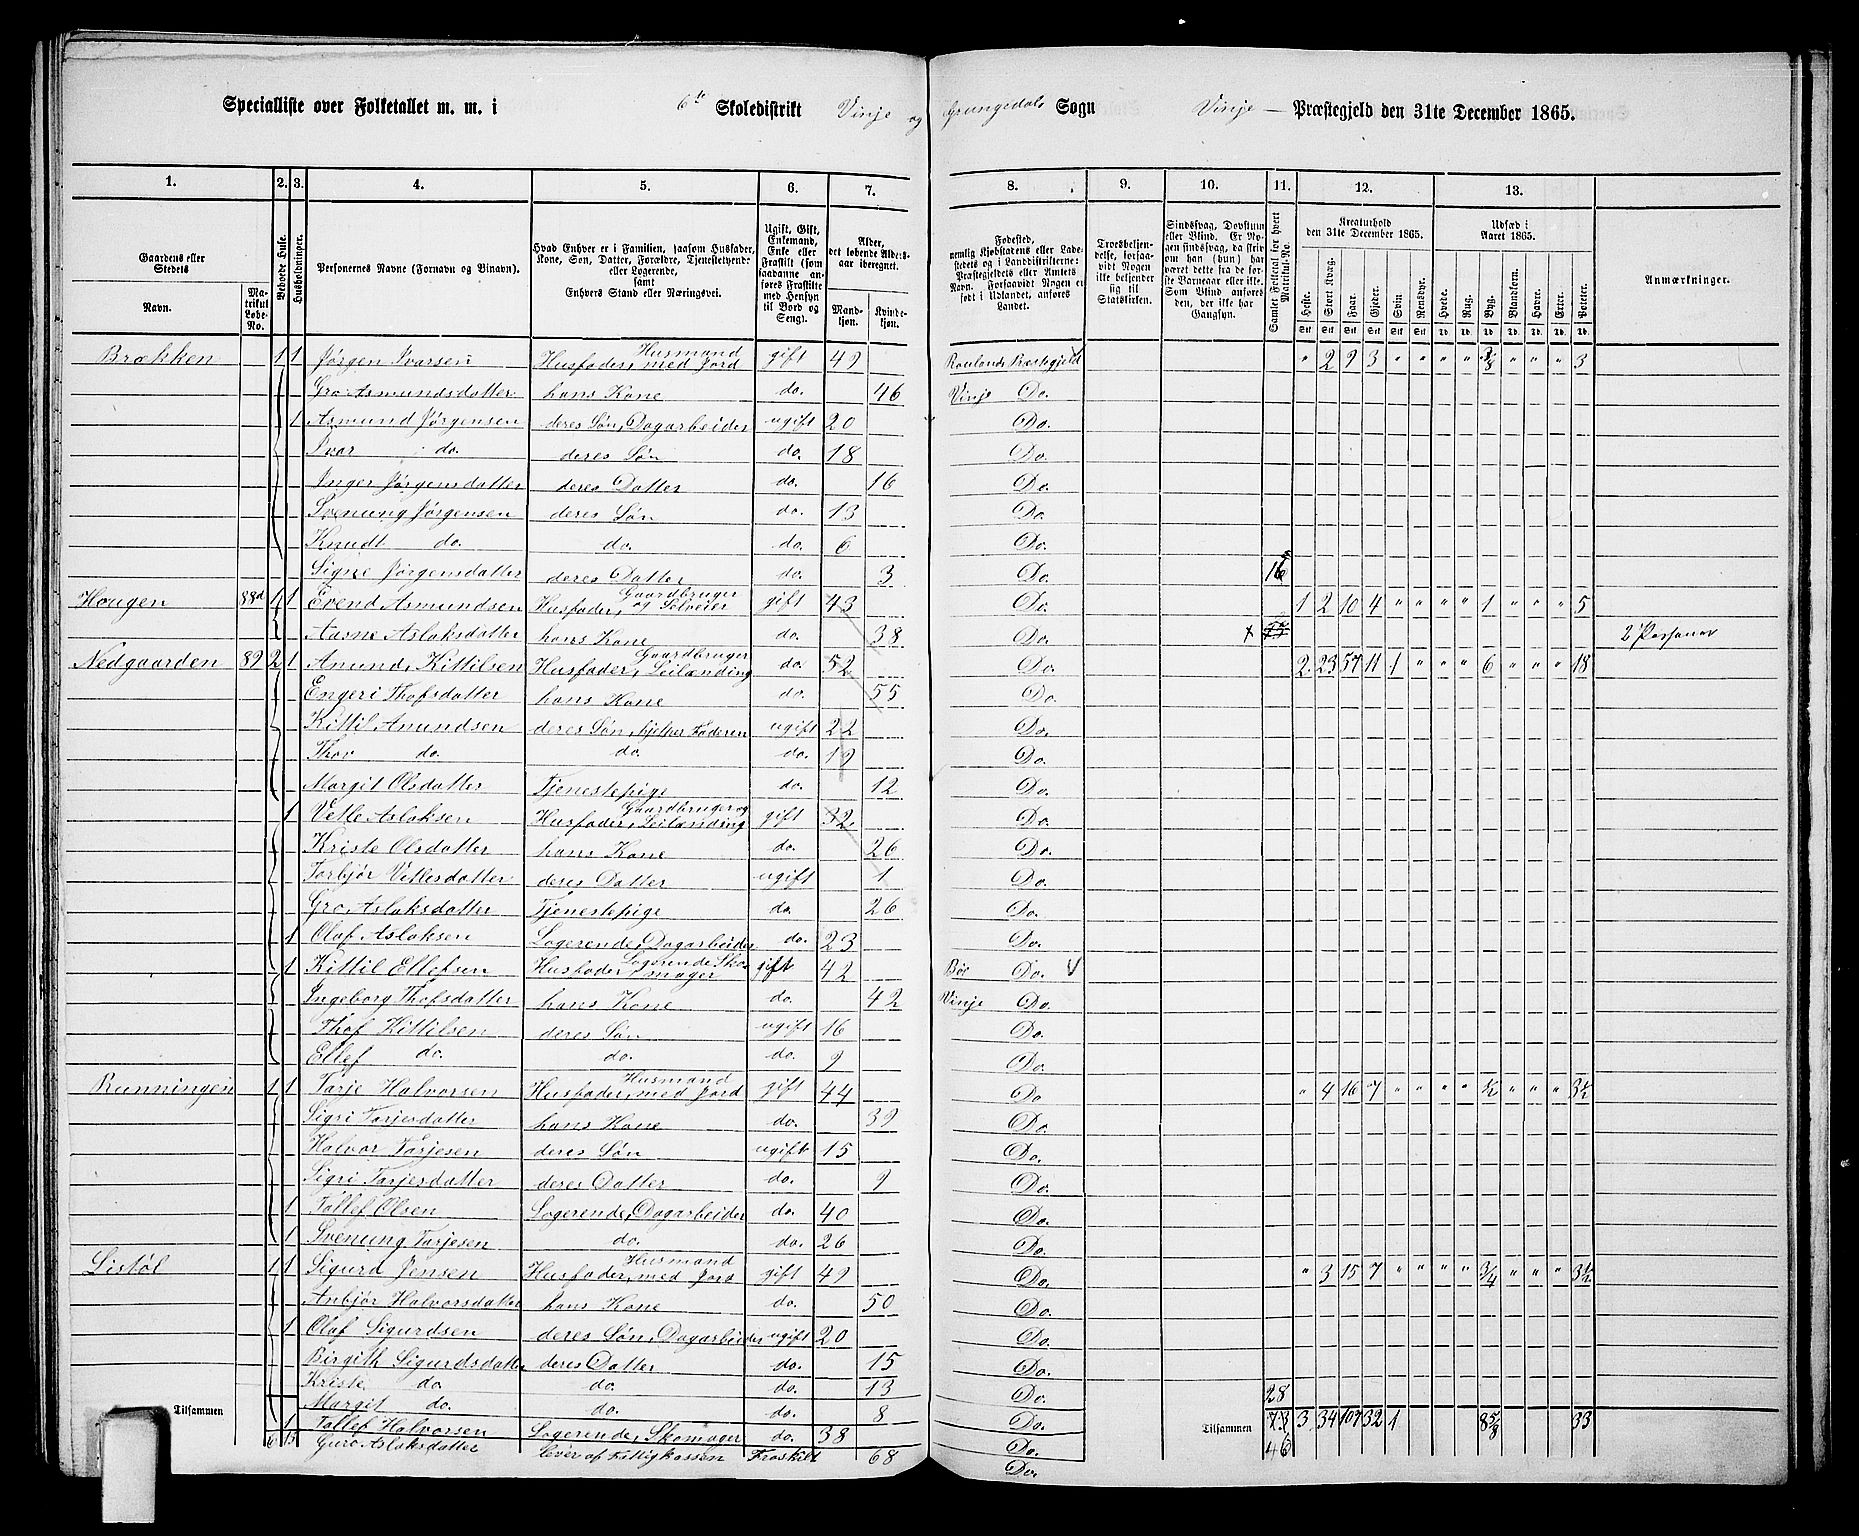 Specialliste over Folketallet m. m. i 6te Skoledistrikt Vinje og Grungedals Sogn Vinje Præstegjeld den 31te December 1865.
1. 2. 3. 4. 5. 6. 7. 8. 9. 10. 11. 12. 13.
Gaardens eller Stedets
Navn.
Matrikul Løbe-No.
Beboede Huse.
Husholdninger.
Personernes Navne (Fornavn og Binavn).
Hvad Enhver er i Familien, saasom Husfader, Kone, Søn, Datter, Forældre, Tjenestetyende eller Logerende, samt Enhvers Stand eller Næringsvei.
Ugift, Gift, Enkemand, Enke eller Fraskilt (som saadanne anføres Fraskilte med Hensyn til Bord og Seng).
Alder, det løbende Aldersaar iberegnet.
Mandkjøn. Kvindekjøn.
Fødested, nemlig Kjøbstadens eller Ladestedets og i Landdistrikterne: Præstegjeldets eller Amtets Navn. Forsaavidt Nogen er født i Udlandet, anføres Landet.
Troesbekjendelse, forsaavidt Nogen ikke bekjender sig til Statskirken.
Sindssvag, Døvstum eller Blind. Er Nogen sindssvag, da skrives om han (hun) har været dette fra de første Barneaar eller ikke. Som Blind anføres den, der ikke har Gangsyn.
Samlet Folketal for hvert Matrikul-No.
Kreaturhold den 31te December 1865.
Heste. Stort Kvæg. Faar. Gjeder. Svin. Rensdyr.
Udsæd i Aaret 1865.
Hvede. Rug. Byg. Blandkorn. Havre. Erter. Poteter.
Anmærkninger.
Brækken 1 1 Jørgen Ivarsen Husfader, Husmand med Jord gift 49 Raulands Præstegjeld " 2 9 3 " " " " 3/8 " " " 3
Gro Asmundsdatter hans Kone do. 46 Vinje Do.
1 Asmund Jørgensen deres Søn, Dagarbeider ugift 20 Do.
Ivar do. deres Søn do. 18 Do.
Inger Jørgensdatter deres Datter do. 16 Do.
Svenung Jørgensen deres Søn do. 13 Do.
Knudt do. do. do. 6 Do.
Signe Jørgensdatter deres Datter do. 3 Do.
Hougen 88d 1 1 Evend Asmundsen Husfader, Gaardbruger og Selveier gift 43 Do. 1 2 10 4 " " " " 1 " " " 5
Aasne Aslaksdatter hans Kone do. 38 Do. 2 Personer
Nedgaarden 89 2 1 Anund Kittilsen Husfader, Gaardbruger Leilænding do. 52 Do. 2 23 57 11 1 " " " 6 " " " 18
Engeri Thofsdatter hans Kone do. 55 Do.
Kittil Anundsen deres Søn, hjelper Faderen ugift 22 Do.
Thov do. do. do. 19 Do.
Margit Olsdatter Tjenestepige do. 12 Do.
1 Vetle Aslaksen Husfader, Gaardbruger og Leilænding gift 32 Do.
Kriste Olsdatter hans Kone do. 26 Do.
Torbjør Vetlesdatter deres Datter ugift 1 Do.
Gro Aslaksdatter Tjenestepige do. 26 Do.
1 Olaf Aslaksen Logerende, Dagarbeider do. 23 Do.
1 Kittil Ellefsen Husfader, Logerende Skomager gift 42 Bøe Do.
Ingeborg Thofsdatter hans Kone do. 42 Vinje Do.
Thof Kittilsen deres Søn ugift 16 Do.
Ellef do. do. do. 9 Do.
Runningen 1 1 Tarje Halvorsen Husfader, Husmand med Jord gift 44 Do " 4 16 7 " " " " 1/2 " " " 3 1/2
Sigri Tarjesdatter hans Kone do. 39 Do.
Halvor Tarjesen deres Søn ugift 15 Do.
Sigri Tarjesdatter deres Datter do. 9 Do.
1 Tollef Olsen Logerende, Dagarbeider do. 40 Do.
1 Svenung Tarjesen do. do. 26 Do.
Listøl 1 1 Sigurd Jensen Husfader, Husmand med Jord gift 49 Do. " 3 15 7 " " " " 3/4 " " " 3 1/2
Anbjør Halvorsdatter hans Kone do. 50 Do.
1 Olaf Sigurdsen deres Søn, Dagarbeider ugift 20 Do.
Birgith Sigurdsdatter deres Datter do. 15 Do.
Kriste do. do. do. 13 Do. 28
Margit do. do. do. 8 Do.
1 Tollef Halvorsen Logerende, Skomager do. 38 Do.
Guro Aslaksdatter lever af Fattigkassen Fraskilt 68 Do.
Tilsammen 6 15 Tilsammen 73 3 34 107 32 1 8 5/8 33
46